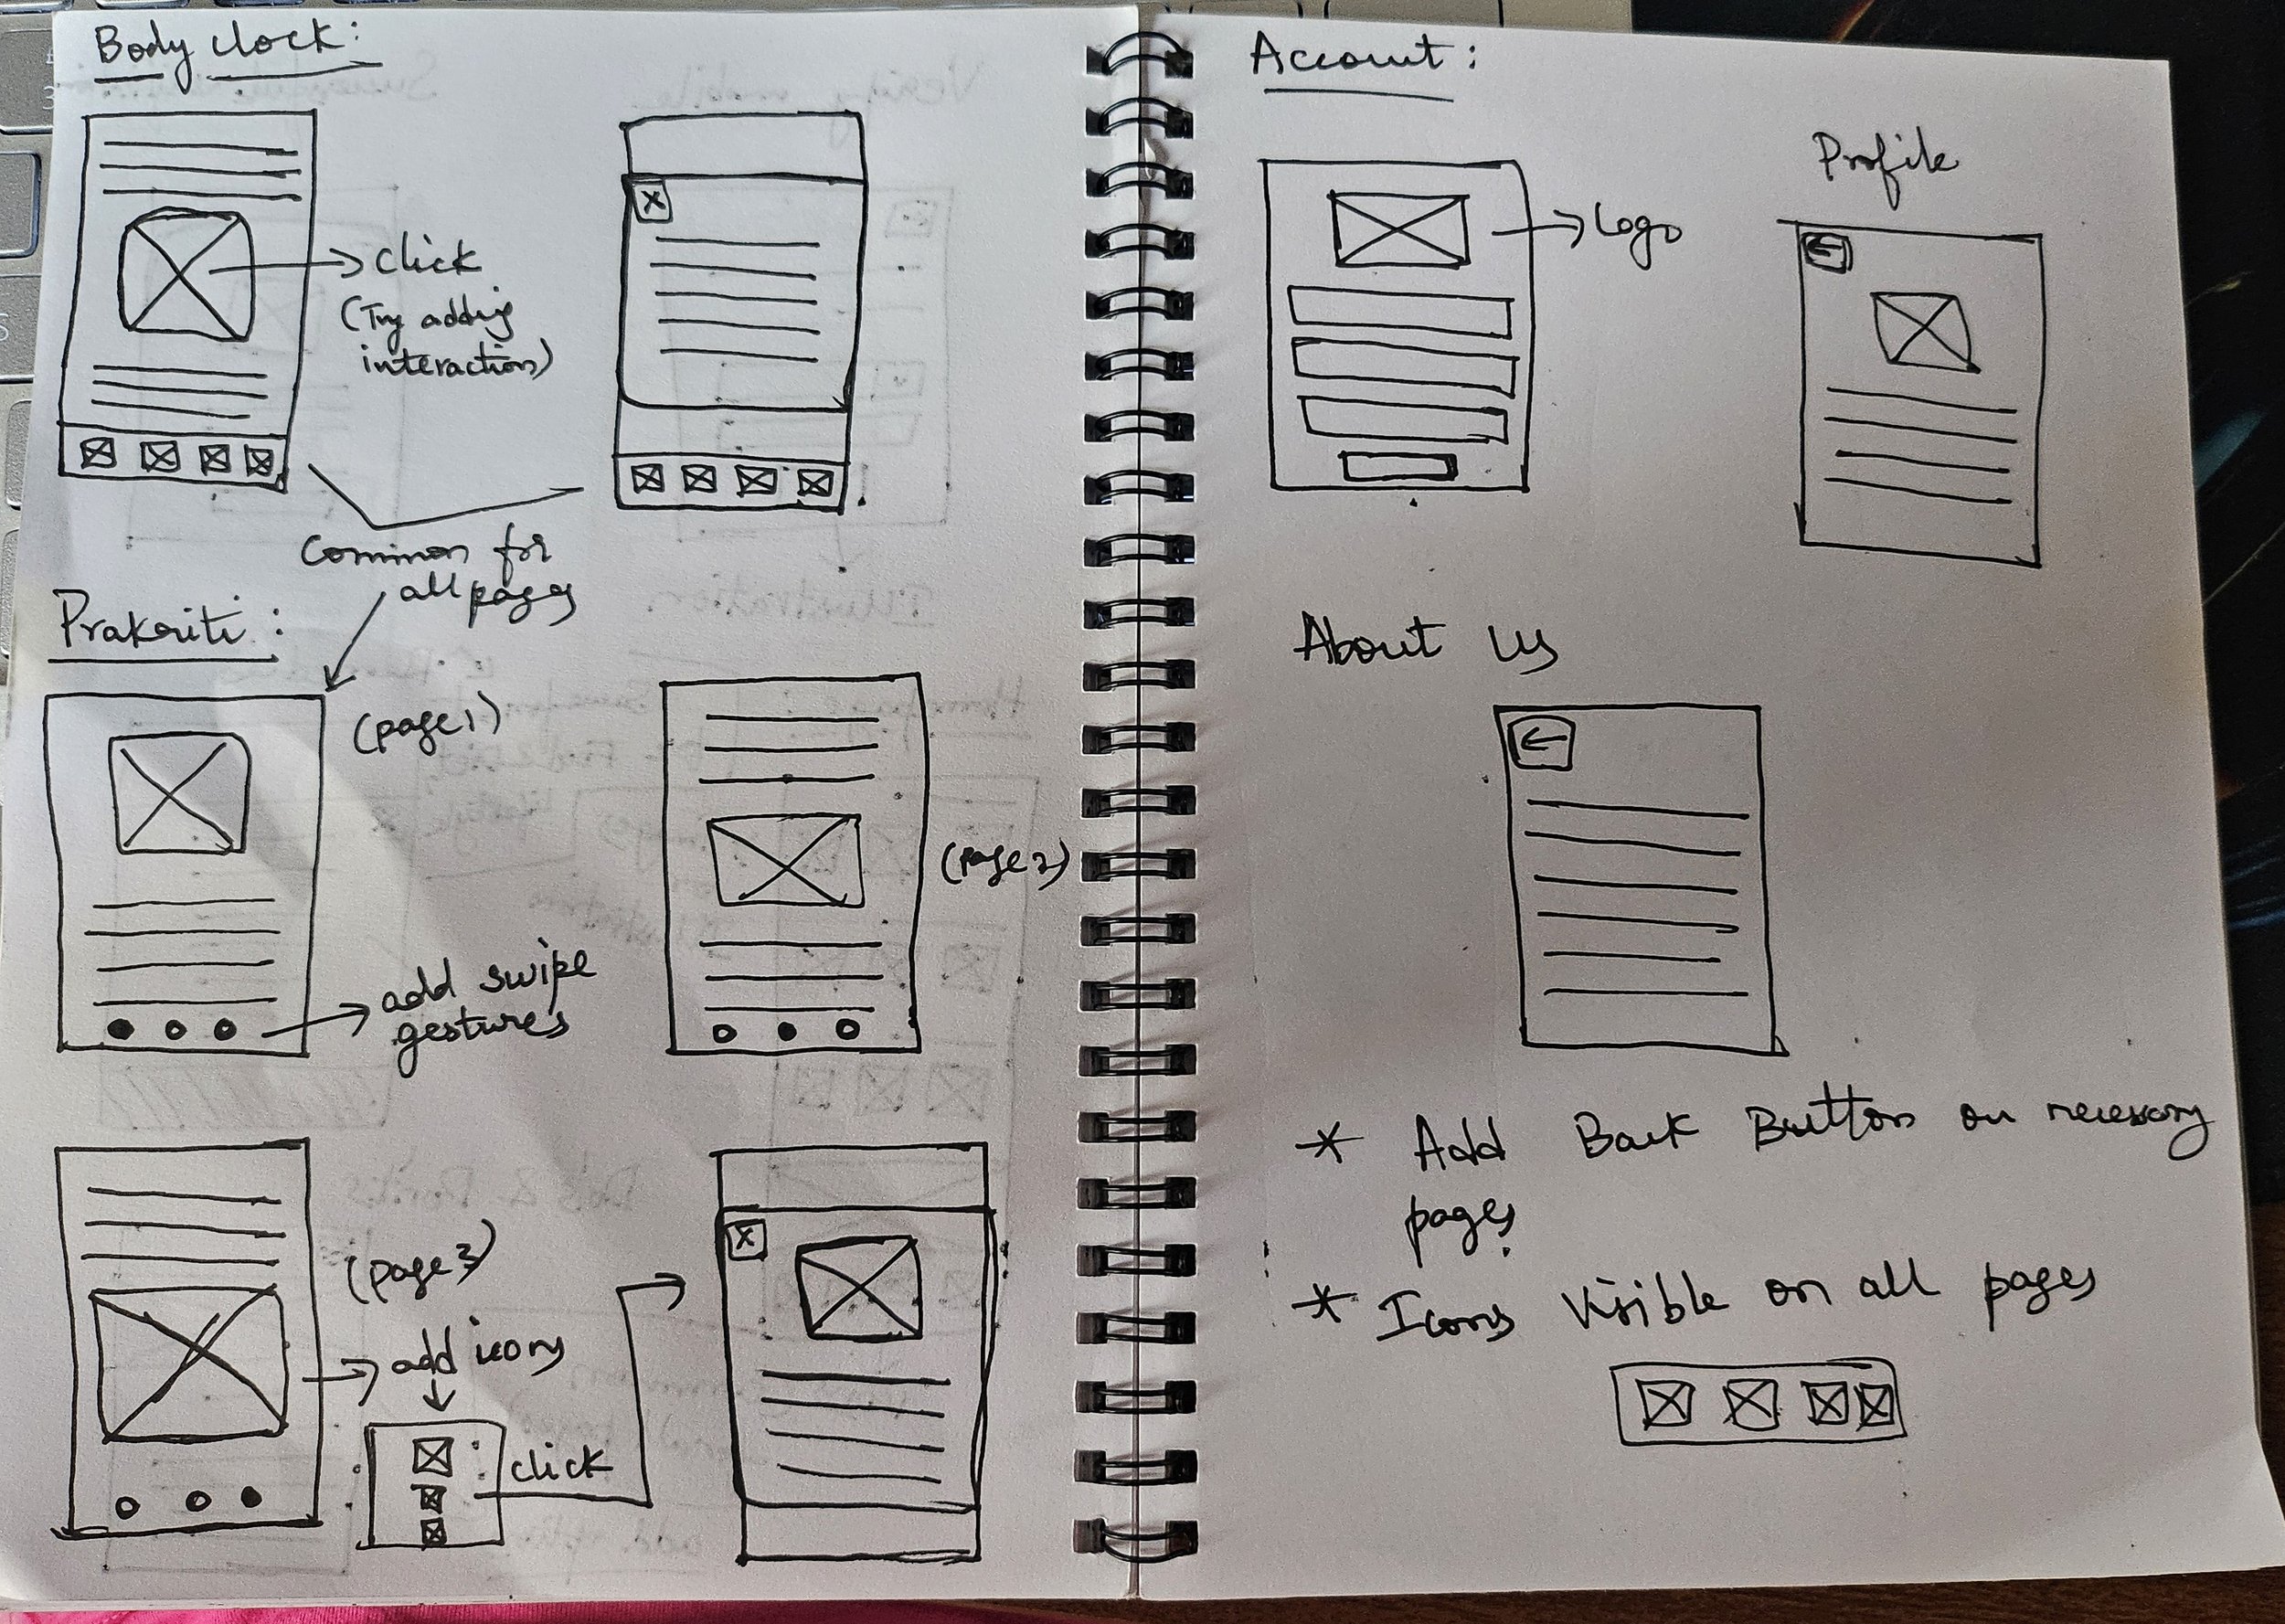 Body clock:
click
(Try adding
interaction)
Common for
all pages
Prakriti:
(page 1)
add swipe
gestures
(page 2)
(page 3)
add icons
click
Account:
Logo
Profile
About Us
* Add Back Button on necessary
pages
* Icons Visible on all pages